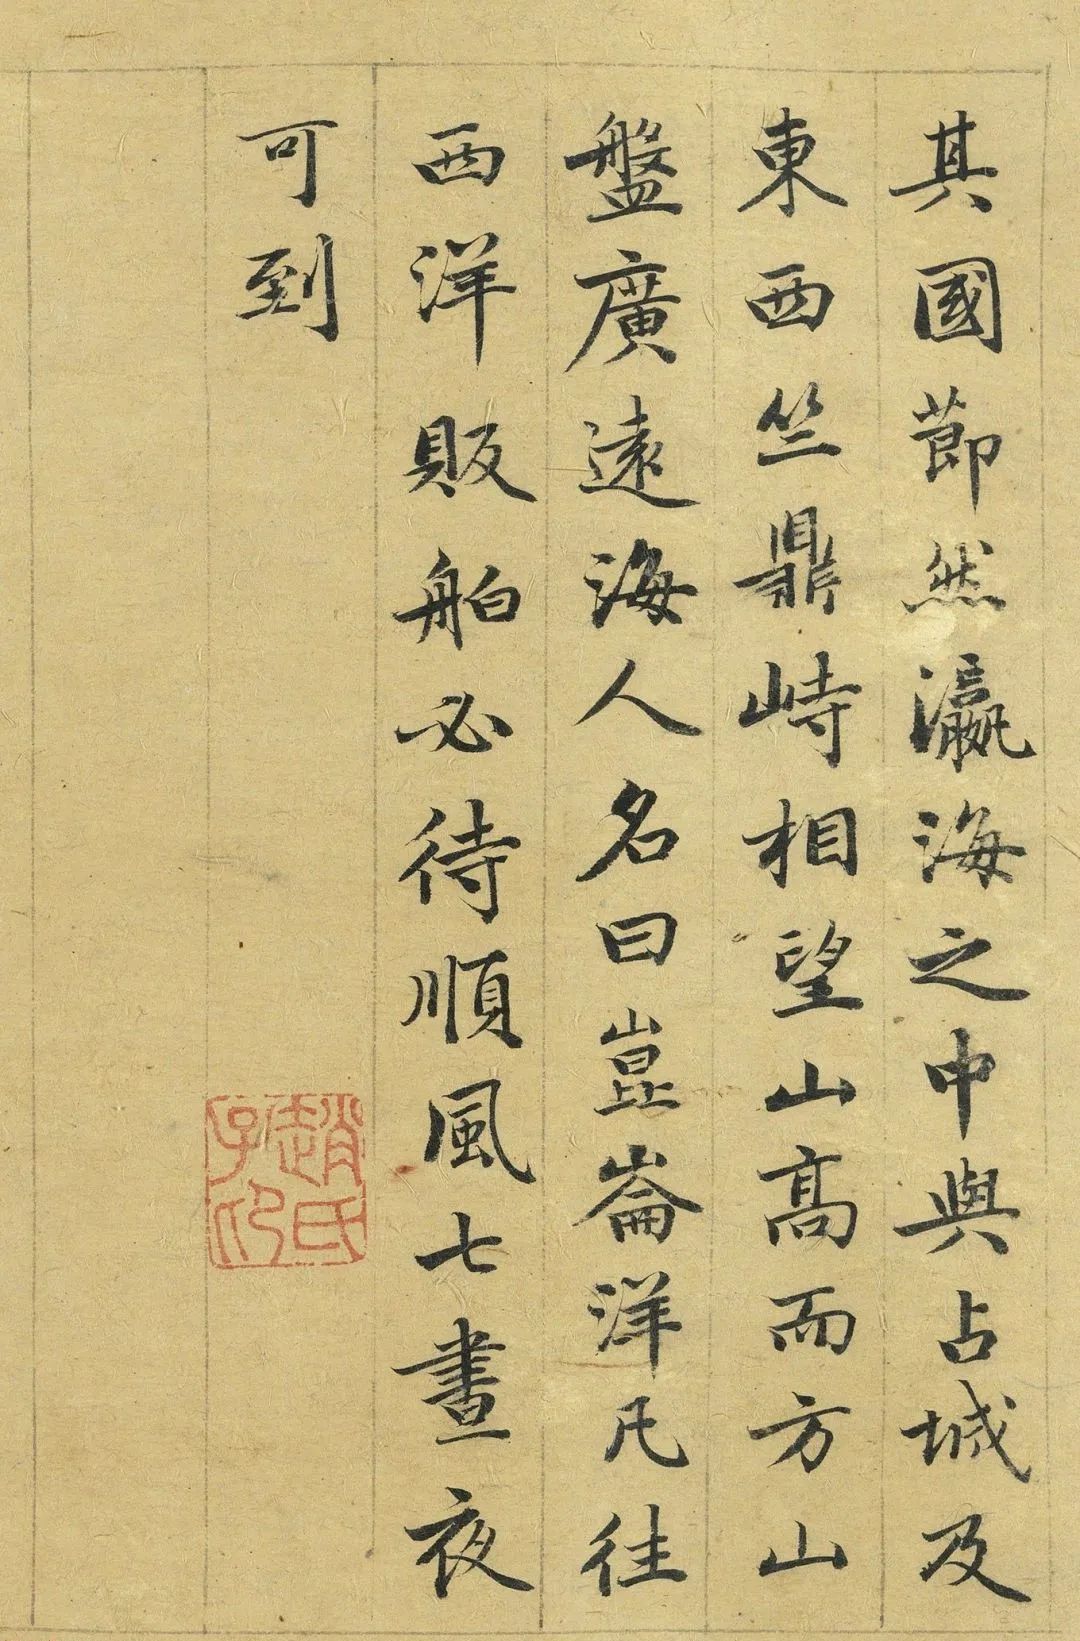 其國莭然瀛海之中與占城及
東西竺鼎峙相望山高而方山
盤廣遠海人名曰崑崙洋凡往
西洋販舶必待順風七晝夜
可到
趙氏子印